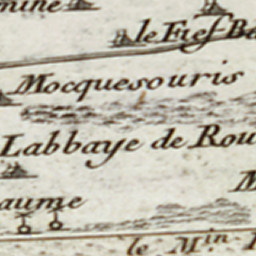 mine
le Fief Be
Mocquesouris
Labbaye de Rou
M
aume
le Min